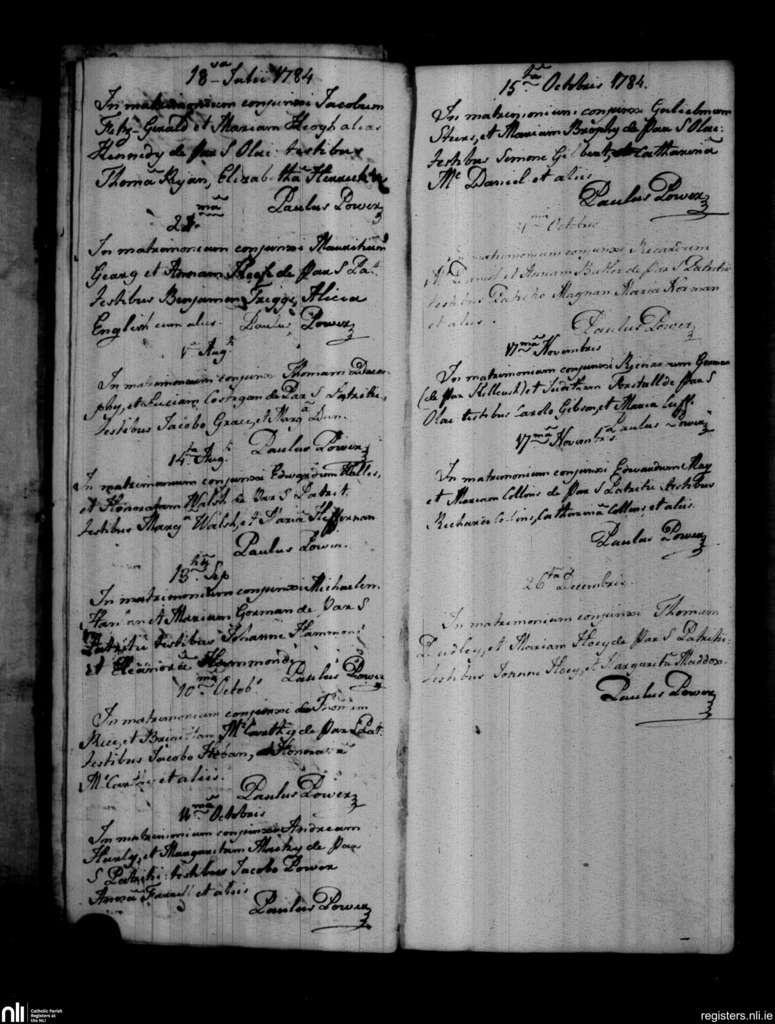 18va Julii 1784
In matrimonium conjunxi Jacobum
Fitz-Gerald et Mariam Keogh alias
Hennedy de Par S Olai: testibus
Thoma Ryan, Elizabetha
Paulus Power
In matrimonium conjunxi Mauritium
Gearg et Annam Keefe de Par S Pat:
testibus Benjamen Frigge, Alicia
English cum aliis. Paulus Power
Augti
In matrimonium conjunxi Thomam
et Luciam Costigan de Par S Patritii,
testibus Jacobo Grace, et Marga Dun.
Paulus Power
14ta Augti
In matrimonium conjunxi Edwardum
et Honoratam Walsh de Par S Patrit.
testibus Marga Walsh, et Maria Heffernan
Paulus Power.
13tia Sep
In matrimonium conjunxi Michaelem
et Mariam Gorman de Par S
Patritii testibus Johanne Hammond
et Eleanora Hammond
10ma Octobs Paulus Power
In matrimonium conjunxi Thomam
Rice, et Mc Carthy de Par S Pat.
testibus Jacobo Hoban, Honora
Mc et aliis.
Paulus Power
Octobris
In matrimonium conjunxi Andream
Hurly, et Margaritam de Par
S Patritii: testibus Jacobo Power
Anna et aliis
Paulus Power
15ta Octobris 1784.
In matrimonium conjunxi Gulielmum
et Mariam Brophy de Par S Olai:
testibus Simone Gilbert, Catharina
Mc Daniel et aliis
Paulus Power
Octobris
In matrimonium conjunxi Ricardum
Mc Daniel et Annam Butler de Par S Patritii
testibus Patritio Magnan Maria Norman
et aliis.
Paulus Power
17ma Novembris
In matrimonium conjunxi
(de Par Killcash) et Juditham de Par S
Olai testibus Carolo Gibson, et Maria
Paulus Power
17ma Novembris
In matrimonium conjunxi Edwardum May
et Mariam Collins de Par S Patritii testibus
Richardo Collins, Catharina Collins et aliis.
Paulus Power
26ta Decembris.
In matrimonium conjunxi Thomam
Dudley, et Mariam Hoey de Par S Patritii:
testibus Joanne Hoey, et Margarita Maddox.
Paulus Power
nli
Catholic Parish
Registers at
the NLI
registers.nli.ie